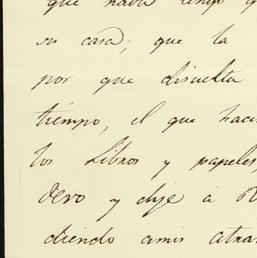 que había tengo
su casa; que la
por que disuelta
tiempo, el que haci
los Libros y papeles,
Vero y dije á
diendo amis atra